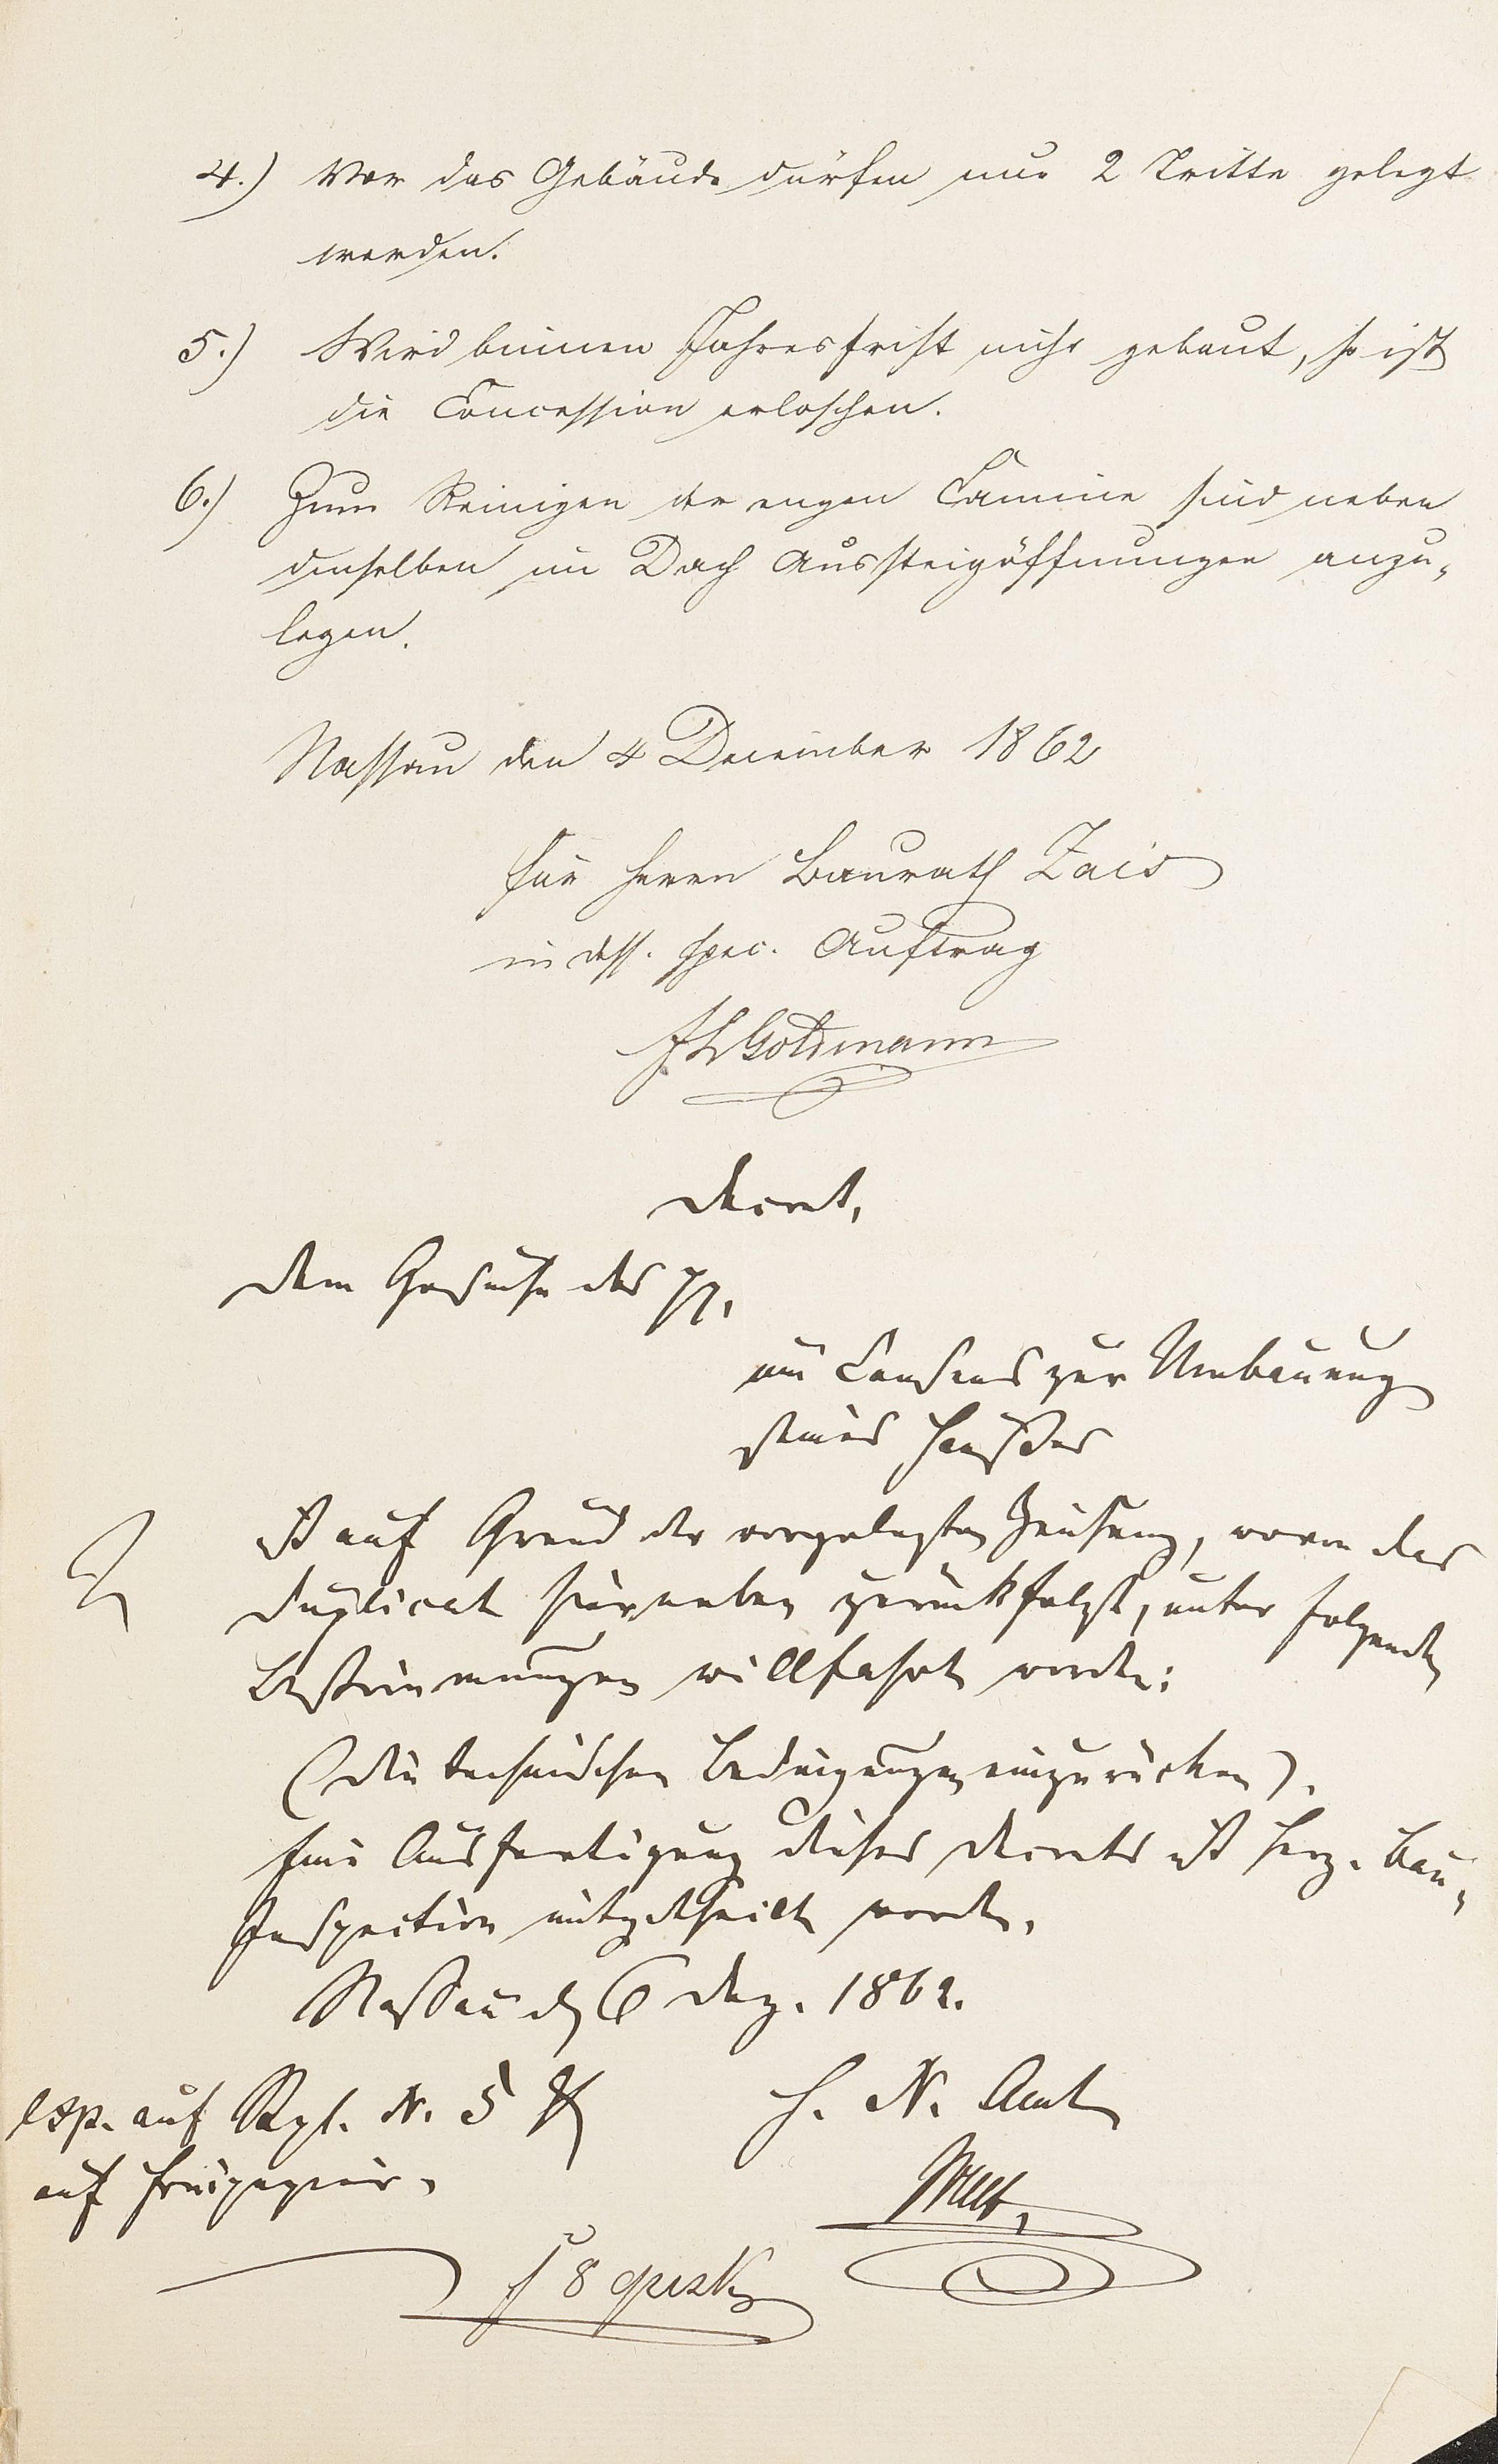 4.) Vor das Gebäude dürfen nur 2 Tritte gelegt
werden.
5.) Wird binnen Jahresfrist nicht gebaut, so ist
die Concession erloschen.
6.) Zum Reinigen der engen Camine sind neben
denselben im Dach Aussteigöffnungen anzu-
legen.
Nassau den 4 December 1862
für Herrn Baurath Zais
in dess. spec. Auftrag
Goldmann
Decret,
Dem Gesuche des pp.
um Consens zur Umbauung
seines Hauses
ist auf Grund der vorgelegten Zeichnung, wovon das
Duplicat hierneben zurückfolgt, unter folgenden
Bestimmungen willfahrt worden:
(die technischen Bedingungen einzurücken).
Eine Ausfertigung dieses Decrets ist Herz. Bau-
Inspection mitgetheilt worden.
Nassau d. 6 Dez. 1862.
H. N. Amt
exp. auf N. 5
auf Freipapier.